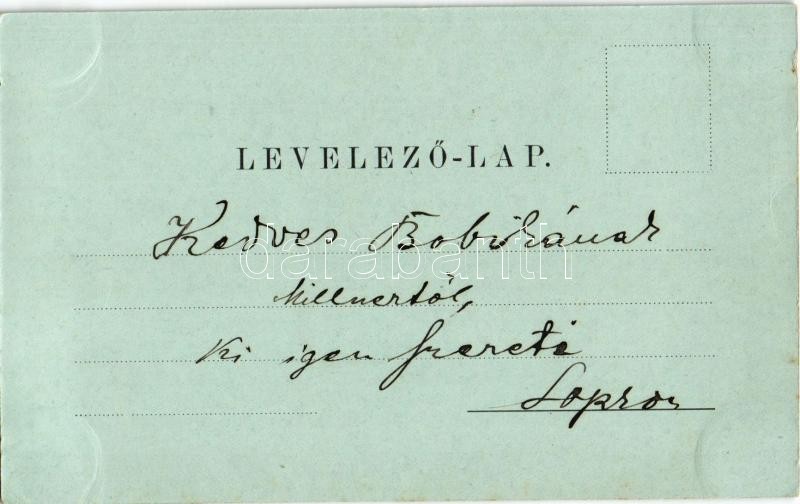 LEVELEZŐ-LAP.
Kedves Bobikának
darabanth
Millnertől,
ki igen szerető
Sopron